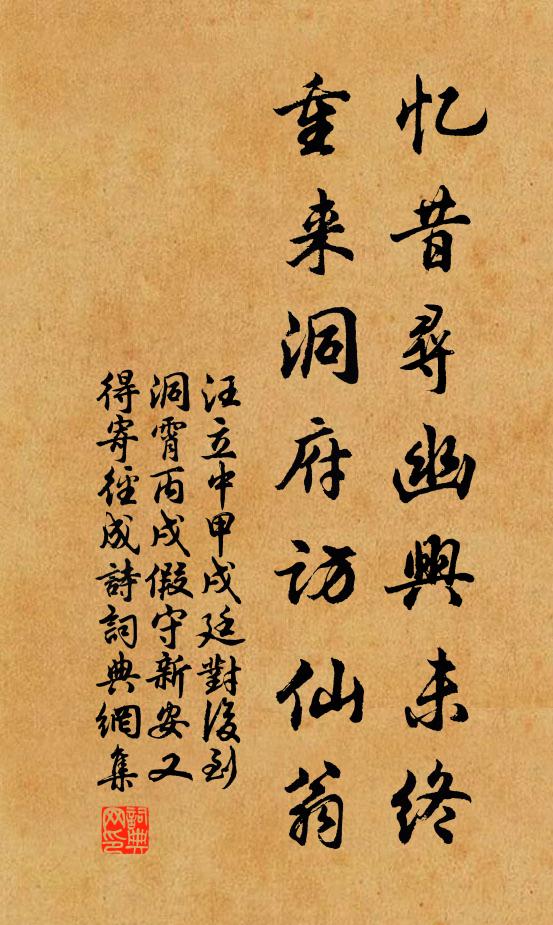 忆昔尋幽興未终
重来洞府访仙翁
汪立中甲戌廷對後到
洞霄丙戌假守新安又
得寄徑成詩詞典網集
詞典
网印